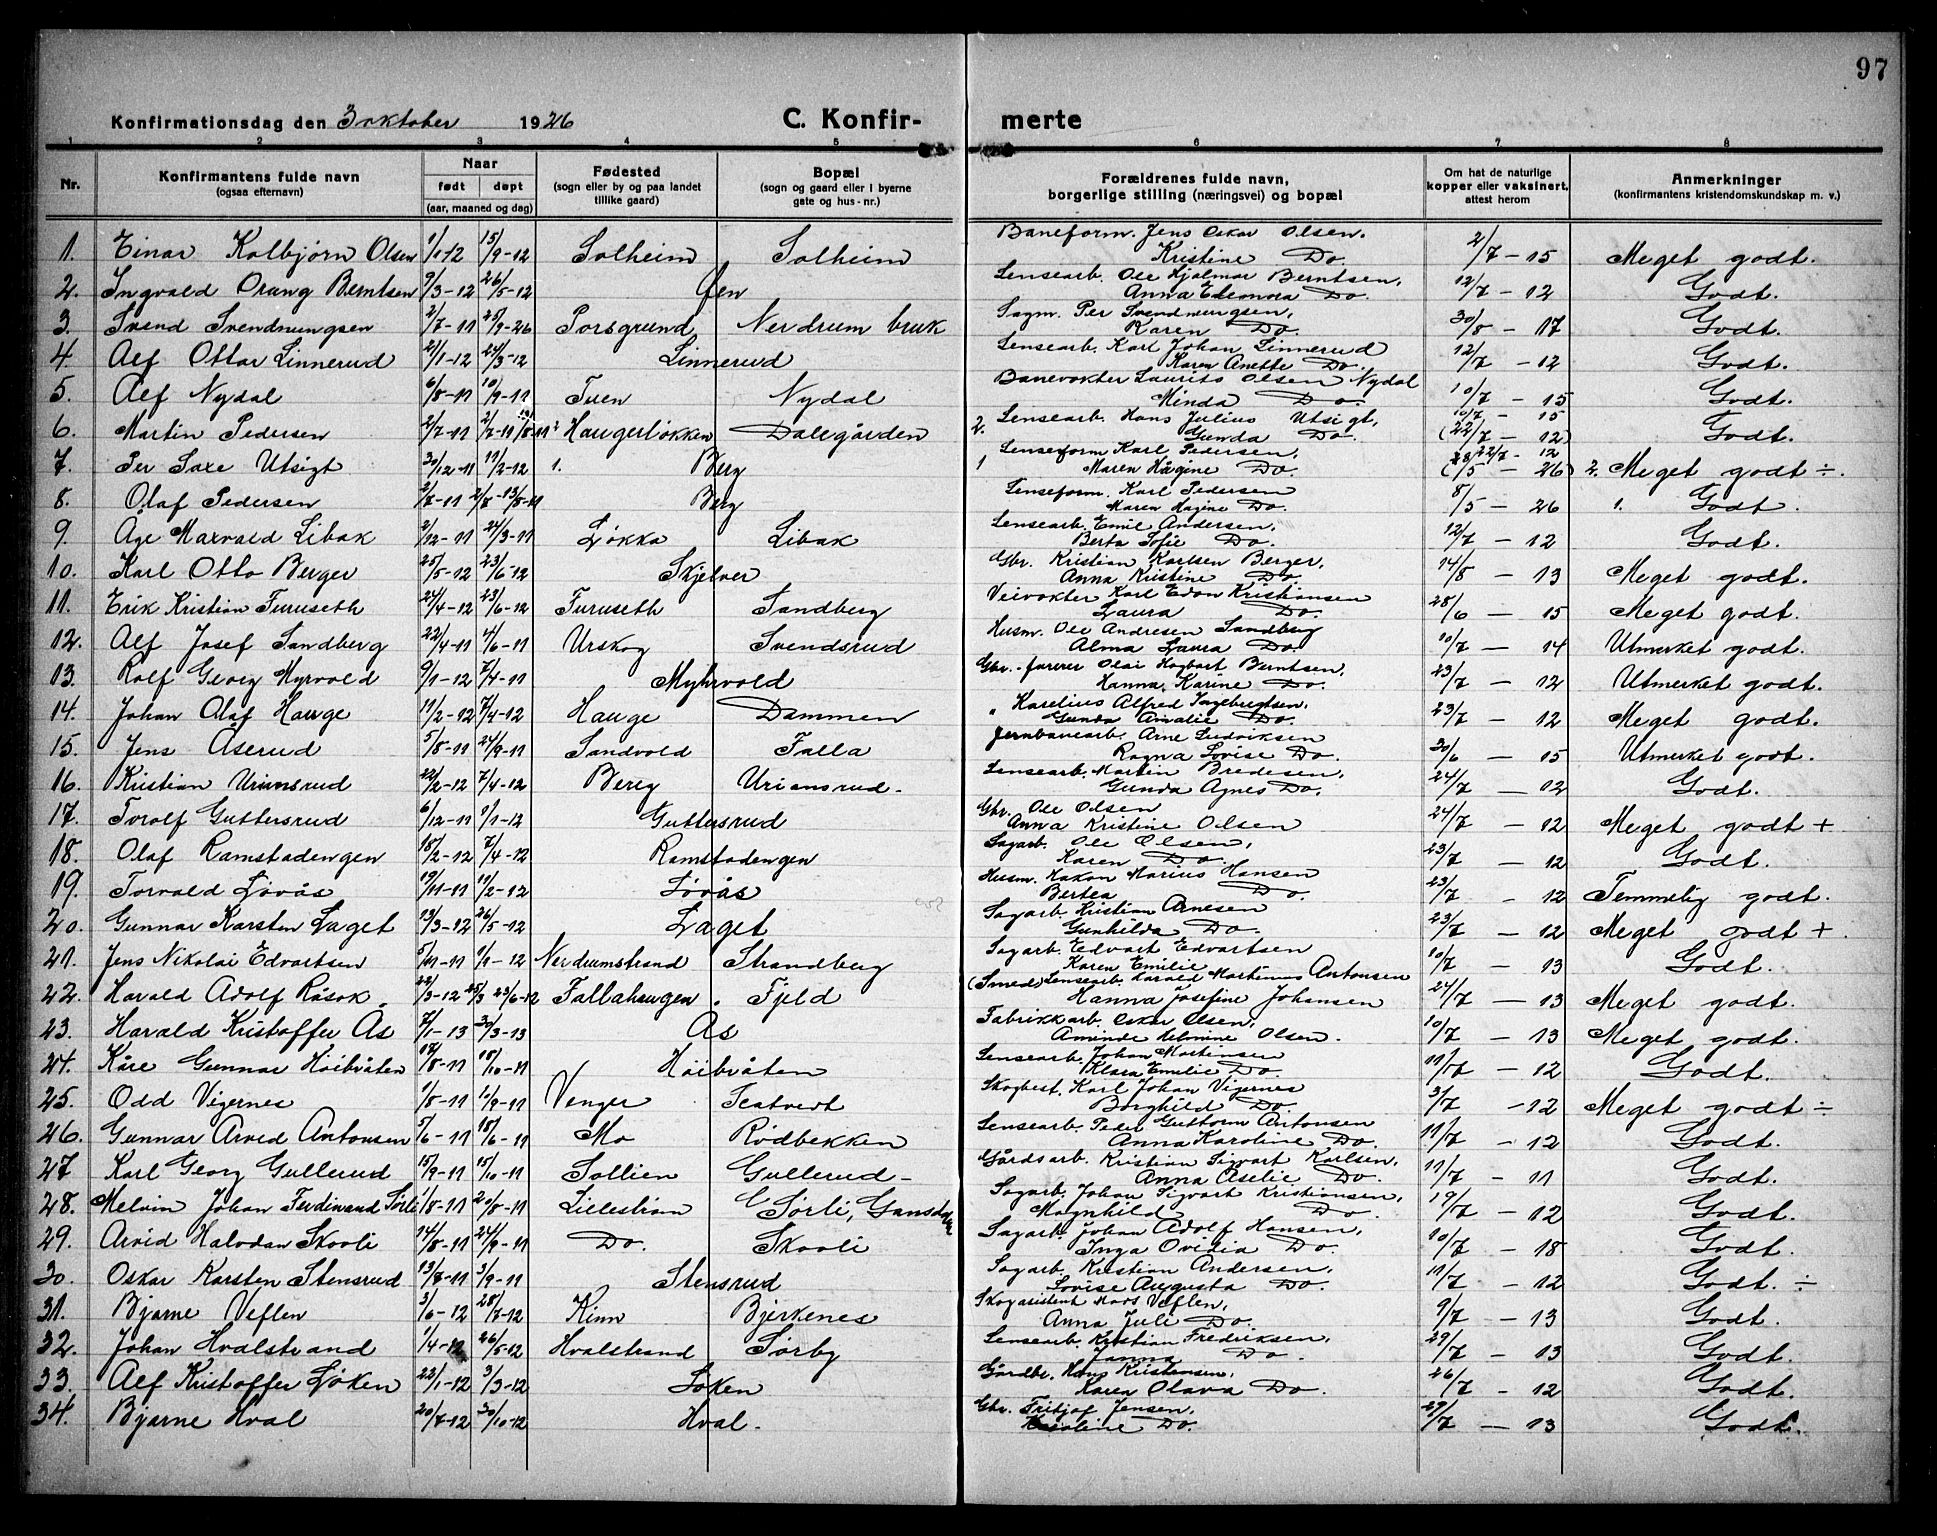 97
Konfirmationsdag den 3 oktober 1926 C. Konfirmerte
1 2 3 4 5 6 7 8
Nr. Konfirmantens fulde navn (ogsaa efternavn) Naar født døpt (aar, maaned og dag) Fødested (sogn eller by og paa landet tillike gaard) Bopæl (sogn og gaard eller i byerne gate og hus-nr.) Forældrenes fulde navn, borgerlige stilling (næringsvei) og bopæl Om hat de naturlige kopper eller vaksinert, attest herom Anmerkninger (konfirmantens kristendomskundskap m. v.)
1. Einar Kolbjørn Olsen 1/1-12 15/9-12 Solheim Solheim Baneform. Jens Oskar Olsen. Kristine Do. 2/7-15 Meget godt.
2. Ingvald Orang Berntsen 9/3-12 26/5-12 Øen Lensearb. Ole Hjalmar Berntsen, Anna Eleonora Do. 12/7-12 Godt.
3. Svend Svendnungsen 2/7-11 25/9-26 Porsgrund Nerdrum bruk Sagm. Per Svendnungsen, Karen Do. 30/8-17 Godt.
4. Alf Ottar Linnerud 21/1-12 24/3-12 Linnerud Lensearb. Karl Johan Linnerud Karen Anette Do. 12/7-12 Godt.
5. Alf Nydal 6/8-11 10/9-11 Tuen Nydal Banevokter Laurits Olsen Nydal Minda Do. 10/7-15 Godt.
6. Martin Pedersen 2/7-11 2/7-11 Haugerløkken Dalegården 2. Lensearb. Hans Julius Utsigt, Gunda Do. 10/7-15 (22/7-12) Godt.
7. Per Saxe Utsigt 30/12-11 11/2-12 1. Berg 1 Lenseform Karl Pedersen, Maren Hågine Do. 22/7-12 (8/5-26) 2. Meget godt ÷.
8. Olaf Pedersen 2/7-11 2/7-13/8-11 Berg Lenseform. Karl Pedersen Maren Hagine Do. 8/5-26 1. Godt.
9. Åge Maxvald Libak 2/12-11 24/3-11 Løkka Libak Lensearb. Emil Andersen, Berta Sofie Do. 12/7-12 Godt.
10. Karl Otto Berger 25/5-12 23/6-12 Skjelver Gbr. Kristian Karlsen Berger, Anna Kristine Do. 14/8-13 Meget godt.
11. Erik Kristian Furuseth 24/4-12 23/6-12 Furuseth Sandberg Veivokter Karl Edon Kristiansen Laura Do. 28/6-15 Meget godt.
12. Alf Josef Sandberg 22/4-11 4/6-11 Urskog Svendsrud Husm. Ole Andresen Sandberg Alma Laura Do. 10/7-14 Utmerket godt.
13. Rolf Georg Myrvold 9/1-12 7/4-11 Myhrvold Gbr.-forrer Olai Hagbart Berntsen, Hanna Karine Do. 23/7-12 Utmerket godt.
14. Johan Olaf Hauge 11/2-12 7/4-12 Hauge Dammen " Karelius Alfred Ingebrigtsen, Gunda Amalie Do. 23/7-12 Meget godt.
15. Jens Åserud 5/8-11 24/9-11 Sandvold Falla Jernbanearb. Arne Ludviksen Ragna Lovise Do. 30/6-15 Utmerket godt.
16. Kristian Uriansrud 22/2-12 7/4-12 Berg Uriansrud- Lensearb. Martin Bredesen, Gunda Agnes Do. 24/7-12 Godt.
17. Torolf Guttersrud 6/12-11 1/1-12 Guttersrud Gbr. Ole Olsen Anna Kristine Olsen 24/7-12 Meget godt +
18. Olaf Ramstadengen 18/2-12 7/4-12 Ramstadengen Sagarb. Ole Olsen, Karen Do. 23/7-12 Godt.
19. Torvald Løvås 19/11-11 11/2-12 Løvås Husm. Hakon Marius Hansen Bertea Do. 23/7-12 Temmelig godt.
20. Gunnar Karsten Laget 13/3-12 26/5-12 Laget Sagarb. Kristian Arnesen Gunhilda Do. 23/7-12 Meget godt +.
21. Jens Nikolai Edvartsen 5/11-11 1/1-12 Nerdrumstrand Strandberg Sagarb. Edvart Edvartsen Karen Emilie 10/7-13 Godt.
22. Harald Adolf Råsok. 22/3-12 23/6-12 Fallahaugen. Fjeld (Smed) Lensearb. Harald Martinus Antonsen Hanna Josefine Johansen 24/7-13 Meget godt.
23. Harald Kristoffer Ås 7/1-13 30/3-13 Ås Fabrikkarb. Oskar Olsen, Aminda Helmine Olsen. 10/7-13 Meget godt.
24. Kåre Gunnar Höibråten 18/8-11 18/10-11 Höibråten Lensearb. Johan Martinsen Klara Emilie Do. 11/7-12 Godt.
25. Odd Vigernes 1/8-11 10/9-11 Venger Teatvedt Skogbest. Karl Johan Vigernes Borghild Do. 3/7-12 Meget godt ÷
26. Gunnar Arvid Antonsen 5/6-11 18/6-11 Mo Rödbekken Lensearb. Peder Guttorm Antonsen Anna Karoline Do. 11/7-12 Godt.
27 Karl Georg Gullerud 15/9-11 15/10-11 Sollien Gullerud- Gårdsarb. Kristian Sigvart Karlsen, Anna Aselie Do. 11/7-11 Godt.
28. Melvin Johan Ferdinand Sörli 1/8-11 20/8-11 Lillestrøm Sørli, Gansdalen Sagarb. Johan Sigvart Kristiansen, Magnhild Do. 19/7-12 Godt.
29. Arvid Halvdan Skovli 14/8-11 24/9-11 Do. Skovli Sagarb. Johan Adolf Hansen, Inga Ovidia Do. 10/7-18 Godt.
30. Oskar Karsten Stensrud 13/7-11 3/9-11 Stensrud Sagarb. Kristian Andersen, Lovise Augusta Do. 11/7-12 Godt. ÷
31. Bjarne Veflen 3/6-12 28/7-12 Kinn Bjerkenes Skogasistent Mars Veflen, Anna Juli Do. 9/7-13 Godt.
32. Johan Hvalstrand 1/4-12 26/5-12 Hvalstrand Sørby Lensearb. Kristian Fredriksen, Janna Do. 29/7-13 Godt.
33. Alf Kristoffer Løken 22/1-12 3/3-12 Løken Gårdbr. Hans Kristensen, Karen Olava Do. 26/7-12 Godt.
34. Bjarne Hval 20/7-12 20/10-12 Hval. Gbr. Fritjof Jensen, Karoline Do. 29/7-13 Godt.